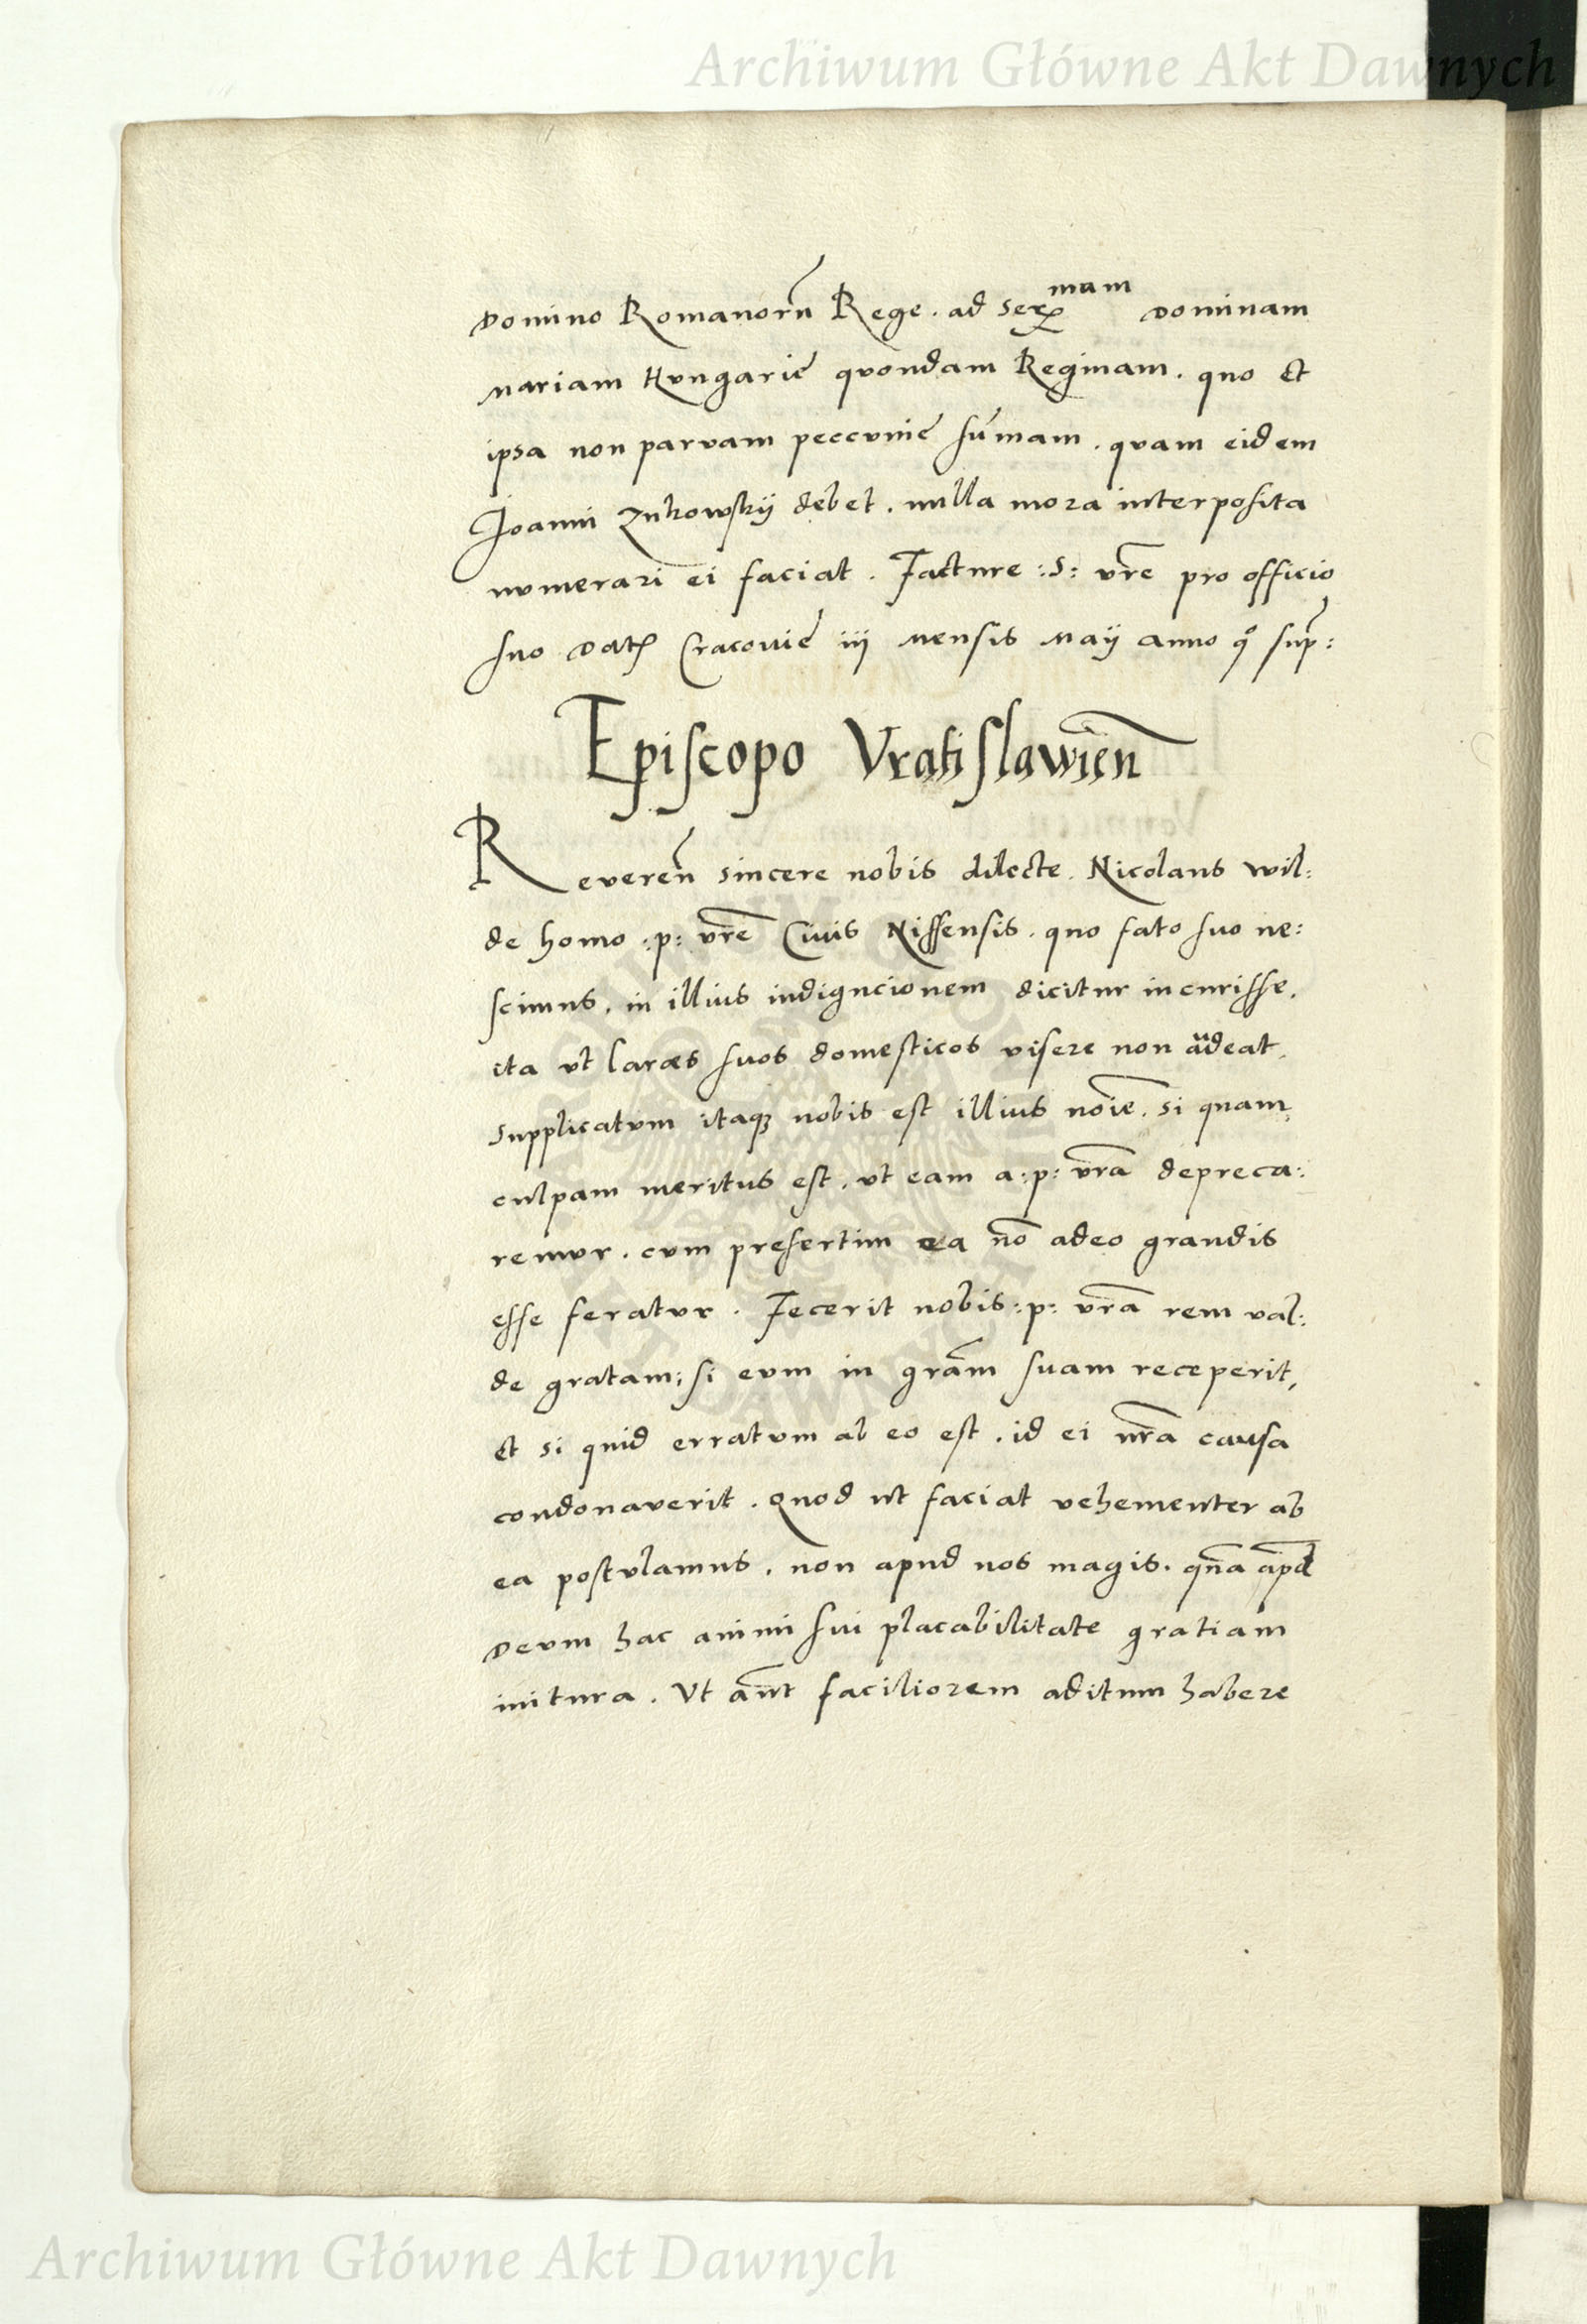 Archiwum Główne Akt Dawnych
Domino Romanorū Rege. ad Ser^mam Dominam
Mariam Hungarie quondam Reginam. quo et
ipsa non parvam peccunie sūmam. quam eidem
Joanni Zukowskij debet. nulla mora interposita
numerari ei faciat. Facture :S: vr̄e pro officio
suo Dat Cracovie iij Mensis Maij anno q̊ sup:
Episcopo Vratislawien̄
Reveren̄ sincere nobis dilecte. Nicolaus Wil:
de homo :p: vr̄e Civis Nissensis. quo fato suo ne:
scimus. in illius indigncionem dicitur incurisse.
ita vt lares suos domesticos visere non audeat.
Supplicatvm itaq; nobis est illius noīe. si quam
culpam meritus est. vt eam a :p: vr̄a depreca:
remvr. cvm presertim ea nō adeo grandis
esse feratvr. Fecerit nobis :p: vr̄a rem val:
de gratam; si evm in grām suam receperit,
et si quid erratvm ab eo est. id ei nr̄a causa
condonaverit. Quod ut faciat vehementer ab
ea postvlamus. non apud nos magis. qn̄a apd̄
Devm hac animi sui placabilitate gratiam
initura. Vt aūt faciliorem aditum habere
Archiwum Główne Akt Dawnych